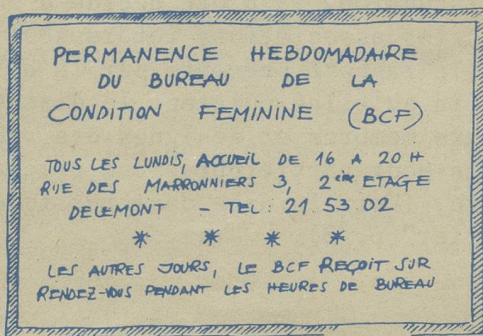 PERMANENCE HEBDOMADAIRE
DU BUREAU DE LA
CONDITION FEMININE (BCF)
TOUS LES LUNDIS, ACCUEIL DE 16 A 20 H
RUE DES MARRONNIERS 3, 2ème ETAGE
DELEMONT - TEL: 21 53 02
* * * *
LES AUTRES JOURS, LE BCF REÇOIT SUR
RENDEZ-VOUS PENDANT LES HEURES DE BUREAU